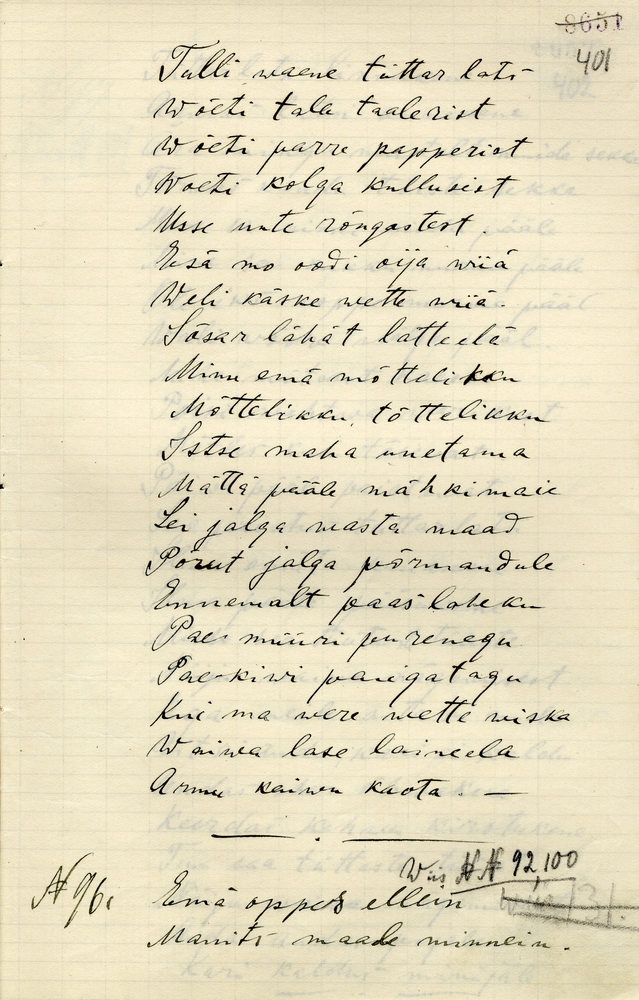 8651
401
Tulli waene tüttar lats
Wõeti tala taalerist
Wõeti parre papperist
Woeti kolga kullusist
Usse uute rõngastest.
Esä mo oodi oija wiiä
Weli käske wette wiiä.
Sõsar lähät latteelä
Minu emä mõttelikku
Mõttelikku, tõttelikku
Istse maha unetama
Mättä pääle mähkimaie
Lei jalga wasta maad
Porut jalga põrmandule
Ennemalt paas laheku
Pae müüri purenegu
Pae-kiwi pangatagu
Kui ma were wette wiska
Waiwa lase laineela
Armu kaiwu kaota. —
Wiis NN 92,100
N 96. Emä oppes ellein
Manits maade minnein.